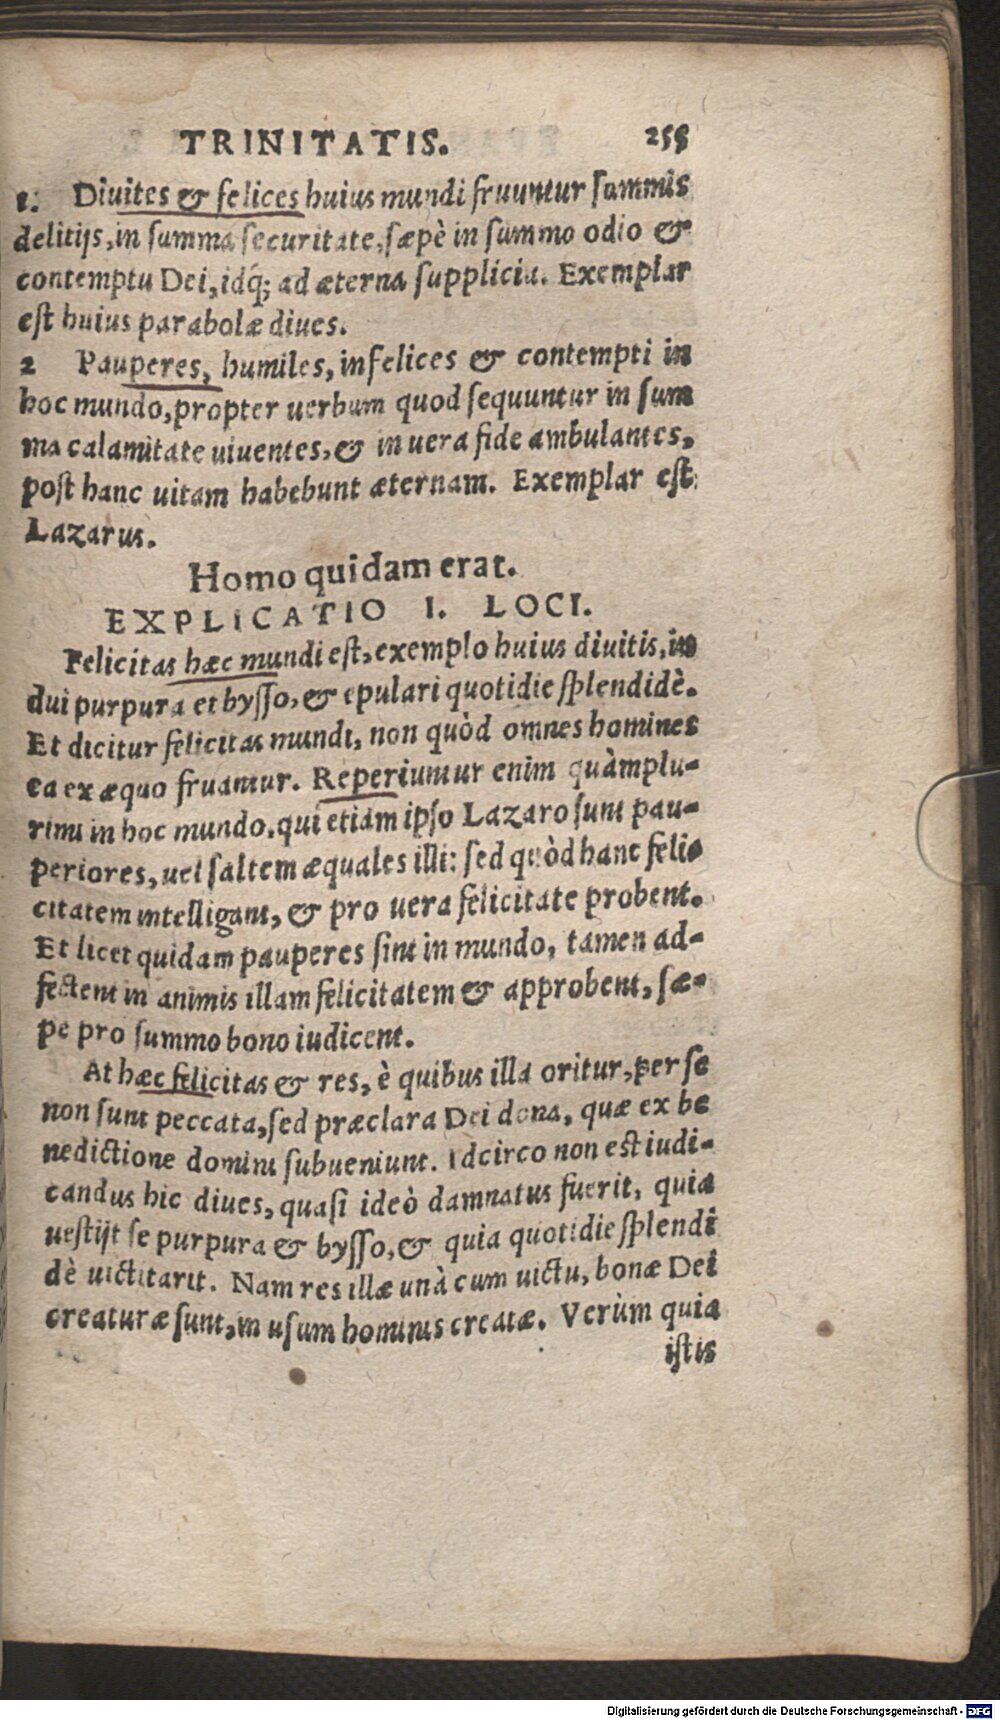 TRINITATIS. 255
1. Diuites & felices huius mundi fruuntur summis
delitijs, in summa securitate, sæpè in summo odio &
contemptu Dei, idq; ad æterna supplicia. Exemplar
est huius parabolæ diues.
2 Pauperes, humiles, infelices & contempti in
hoc mundo, propter uerbum quod sequuntur in sum
ma calamitate uiuentes, & in uera fide ambulantes,
post hanc uitam habebunt æternam. Exemplar est
Lazarus.
Homo quidam erat.
EXPLICATIO I. LOCI.
Felicitas hæc mundi est, exemplo huius diuitis, in
dui purpura et bysso, & epulari quotidie splendidè.
Et dicitur felicitas mundi, non quòd omnes homines
ea ex æquo fruantur. Reperiuntur enim quàmplu-
rimi in hoc mundo, qui etiam ipso Lazaro sunt pau-
periores, uel saltem æquales illi: sed quòd hanc feli-
citatem intelligant, & pro uera felicitate probent.
Et licet quidam pauperes sint in mundo, tamen ad-
fectent in animis illam felicitatem & approbent, sæ-
pe pro summo bono iudicent.
At hæc felicitas & res, è quibus illa oritur, per se
non sunt peccata, sed præclara Dei dona, quæ ex be
nedictione domini subueniunt. Idcirco non est iudi-
candus hic diues, quasi ideò damnatus fuerit, quia
uestijt se purpura & bysso, & quia quotidie splendi
dè uictitarit. Nam res illæ unà cum uictu, bonæ Dei
creaturæ sunt, in usum hominis creatæ. Verùm quia
istis
Digitalisierung gefördert durch die Deutsche Forschungsgemeinschaft - DFG